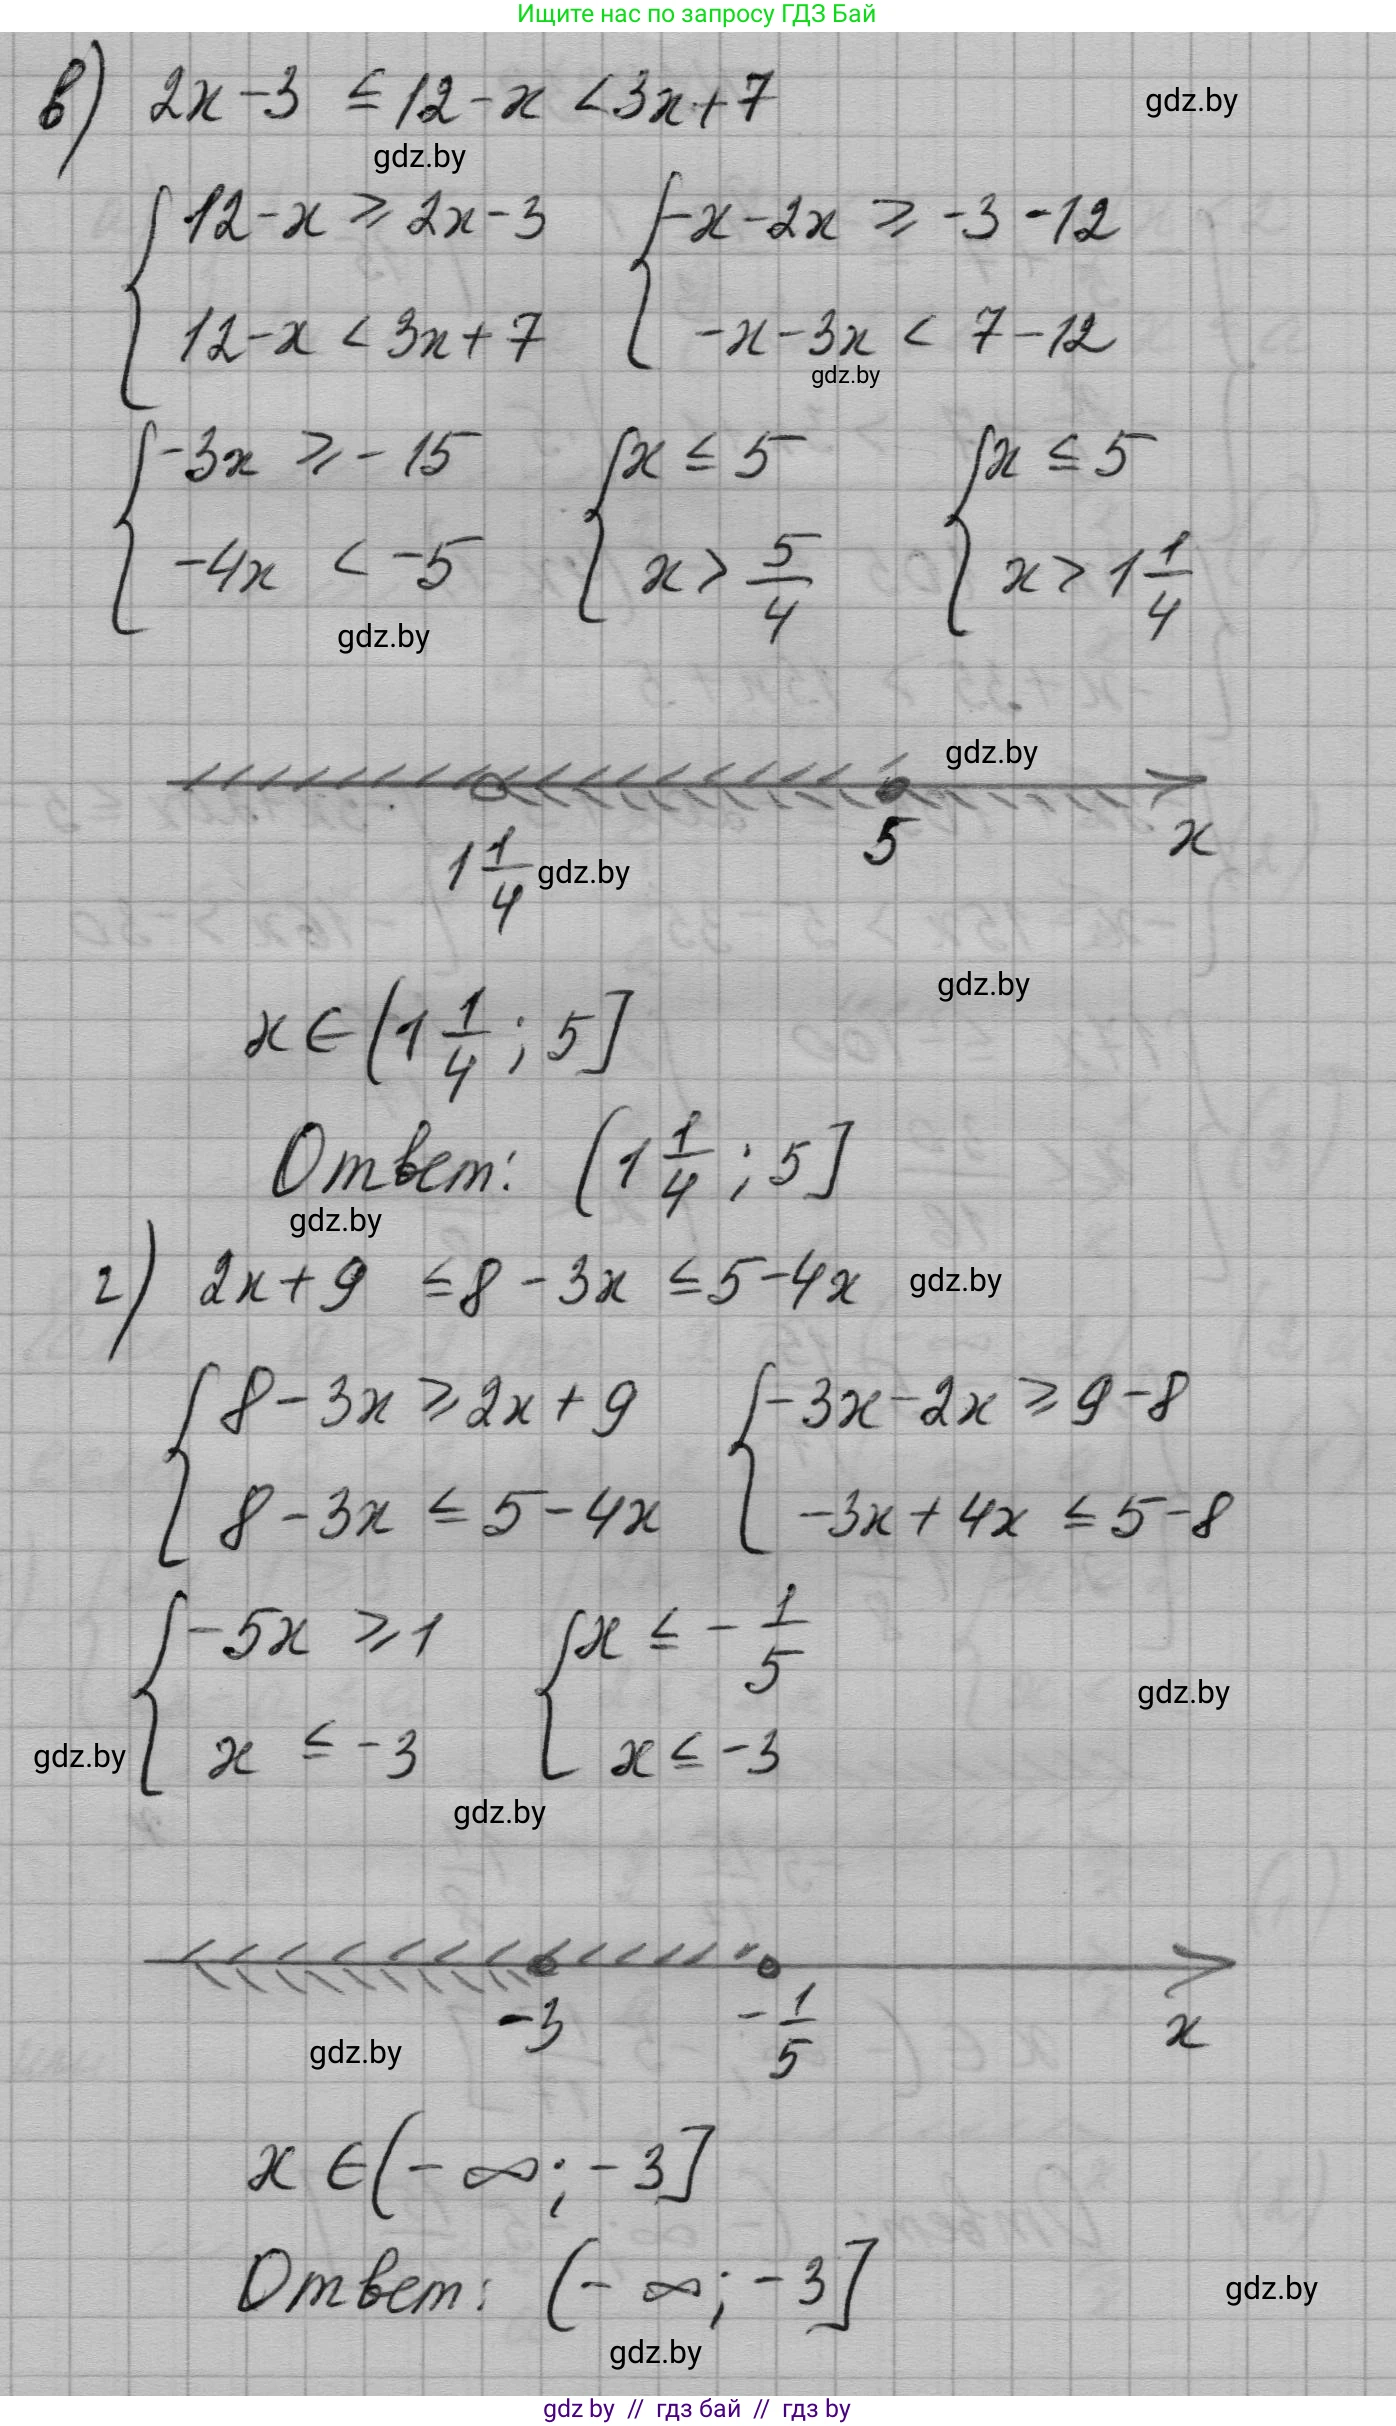 Ищите нас по запросу ГДЗ Бай
в) 2x-3 ≤ 12-x < 3x+7
gdz.by
gdz.by
{ 12-x ≥ 2x-3 { -x-2x ≥ -3-12
12-x < 3x+7 -x-3x < 7-12
gdz.by
{ -3x ≥ -15 { x ≤ 5 { x ≤ 5
-4x < -5 x > 5/4 x > 1 1/4
gdz.by
gdz.by
1 1/4 5 x
gdz.by
gdz.by
x ∈ (1 1/4; 5]
Ответ: (1 1/4; 5]
gdz.by
г) 2x+9 ≤ 8-3x ≤ 5-4x
gdz.by
{ 8-3x ≥ 2x+9 { -3x-2x ≥ 9-8
8-3x ≤ 5-4x -3x+4x ≤ 5-8
{ -5x ≥ 1 { x ≤ -1/5
gdz.by
x ≤ -3 x ≤ -3
gdz.by
gdz.by
-3 -1/5 x
gdz.by
x ∈ (-∞; -3]
Ответ: (-∞; -3]
gdz.by
gdz.by
gdz by // гдз бай // гдз by